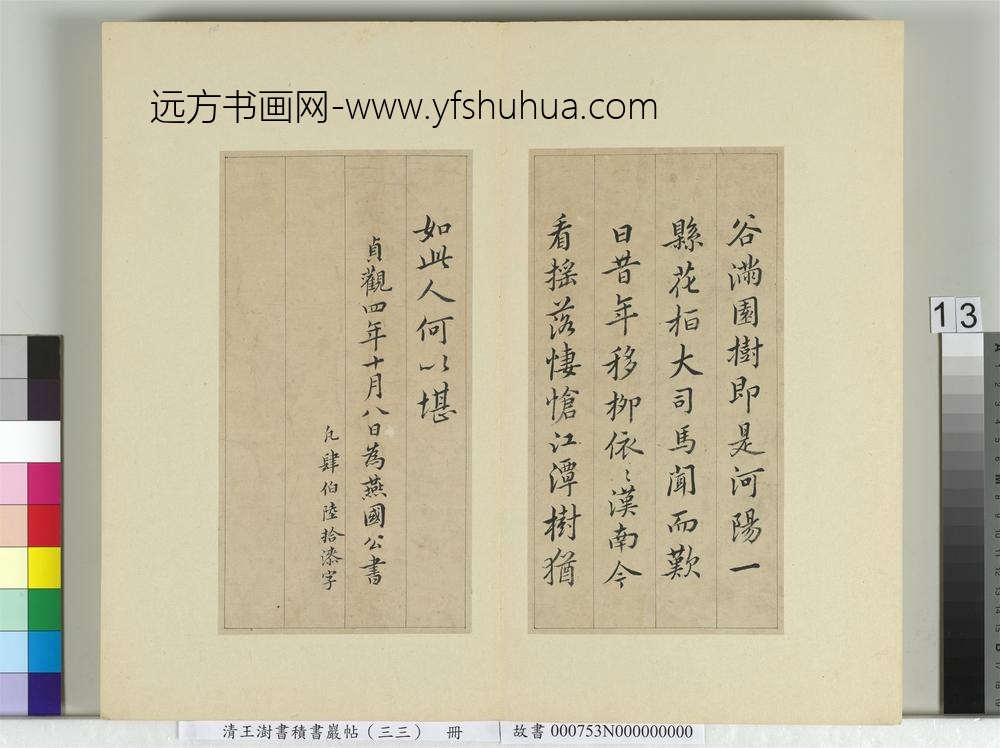 远方书画网-www.yfshuhua.com
谷滿園樹即是河陽一
縣花桓大司馬聞而歎
日昔年移柳依〻漢南今
看搖落悽愴江潭樹猶
如此人何以堪
貞觀四年十月八日為燕國公書
凡肆伯陸拾漆字
13
清王澍書積書巖帖（三三） 冊 故書 000753N000000000